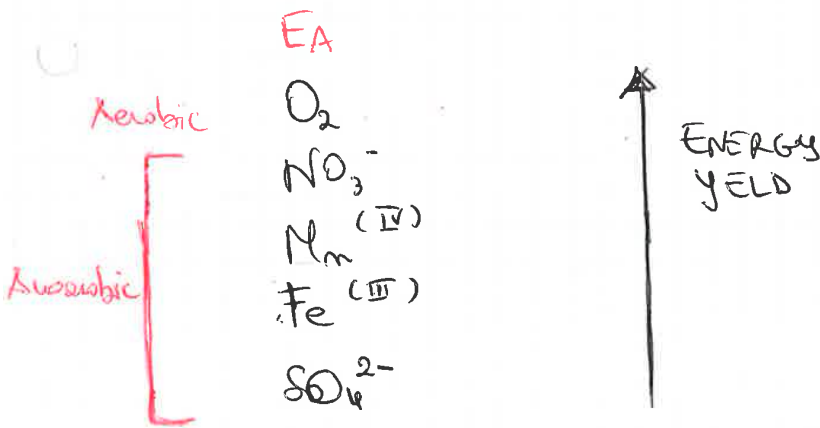 EA
Aerobic
O₂
NO₃⁻
Mn (IV)
Anaerobic
Fe (III)
SO₄²⁻
ENERGY
YELD